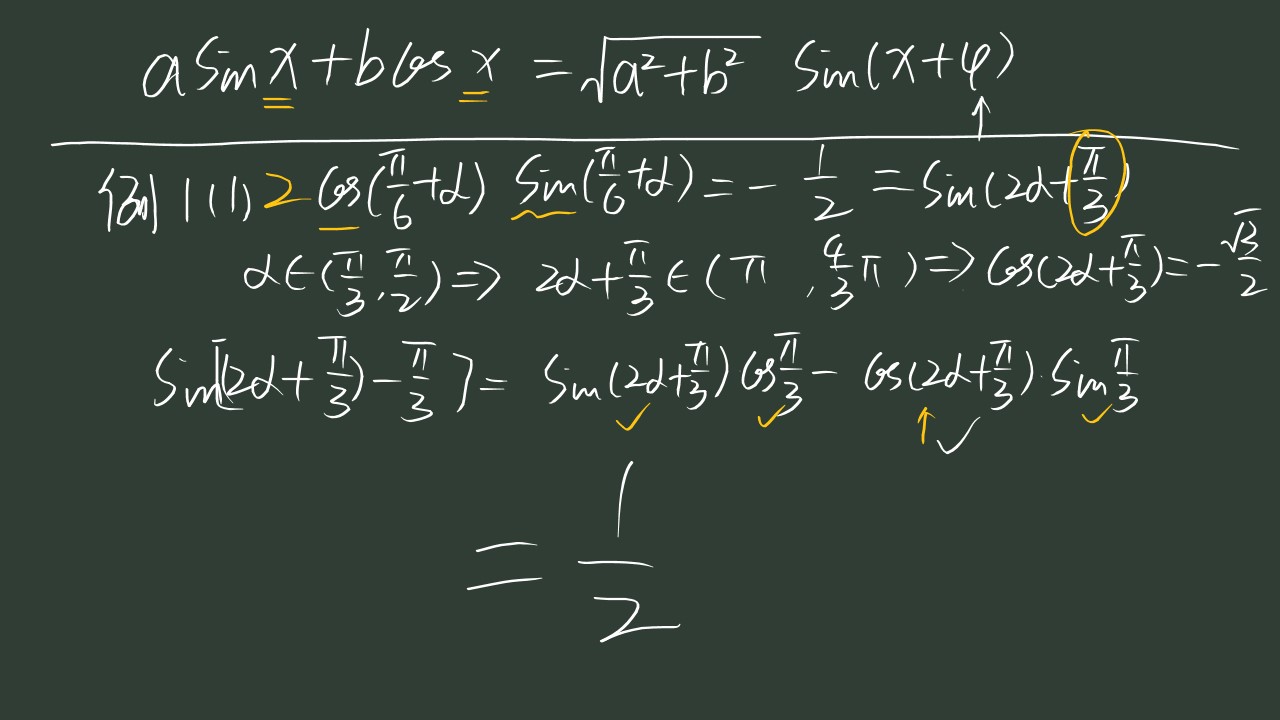 a sin x + b cos x = √(a²+b²) sin(x+φ)
例1 (1) 2 cos(π/6+α) sin(π/6+α) = -1/2 = sin(2α+π/3)
α∈(π/3,π/2) => 2α+π/3 ∈ (π, 4/3π) => cos(2α+π/3) = -√3/2
sin[(2α+π/3)-π/3] = sin(2α+π/3)cos π/3 - cos(2α+π/3)·sin π/3
= 1/2